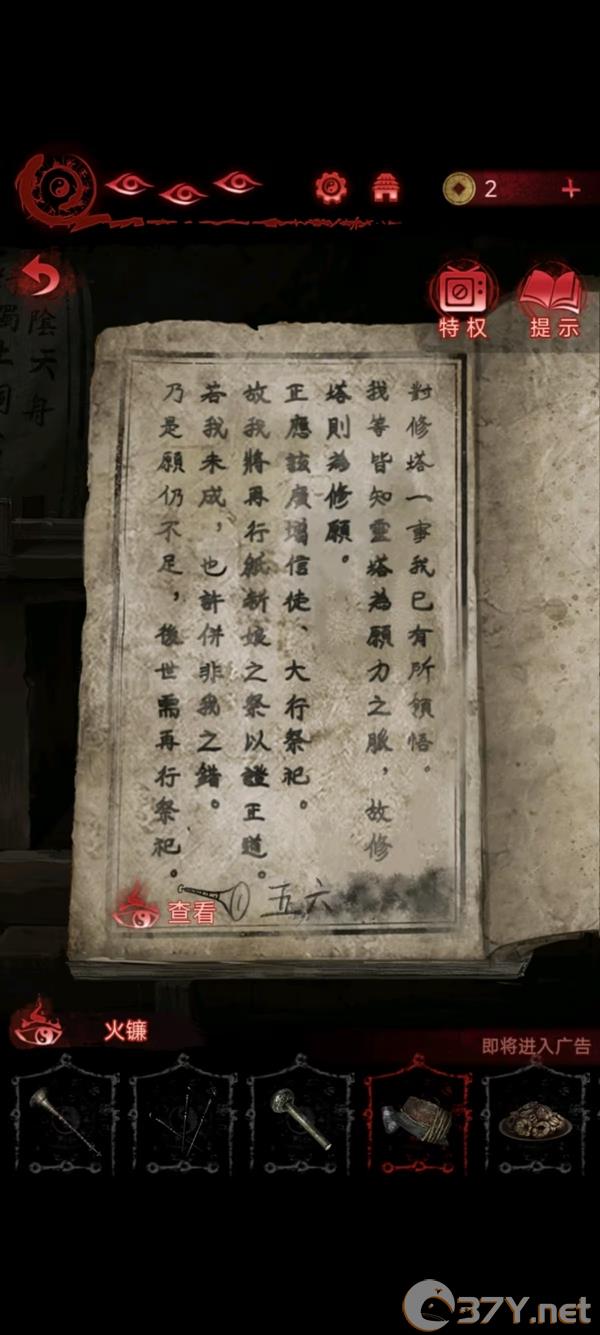 2
特权
提示
陰天舟
對修塔一事我已有所領悟。
我等皆知靈塔為願力之脈，故修
塔則為修願。
正應該廣增信徒、大行祭祀。
故我將再行紙新娘之祭以證正道。
若我未成，也許併非我之錯。
乃是願仍不足，後世需再行祭祀。
查看
1
五六
火镰
即将进入广告
37Y.net